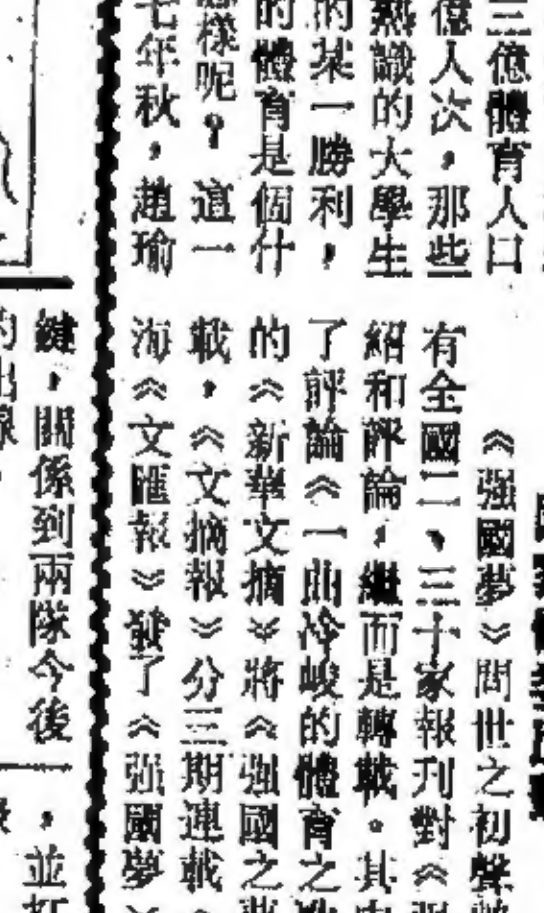 三億體育人口
億人次，那些
熟識的大學生
的某一勝利，
的體育是個什
樣呢？這一
七年秋，趙瑜
《强國夢》問世之初
有全國二、三十家報刊對《
紹和評論，繼而是轉載。其
了評論《一曲冷峻的體育之
的《新華文摘》將《强國之
載，《文摘報》分三期連載
海《文匯報》發了《强國夢
鍵，關係到兩隊今後
，並